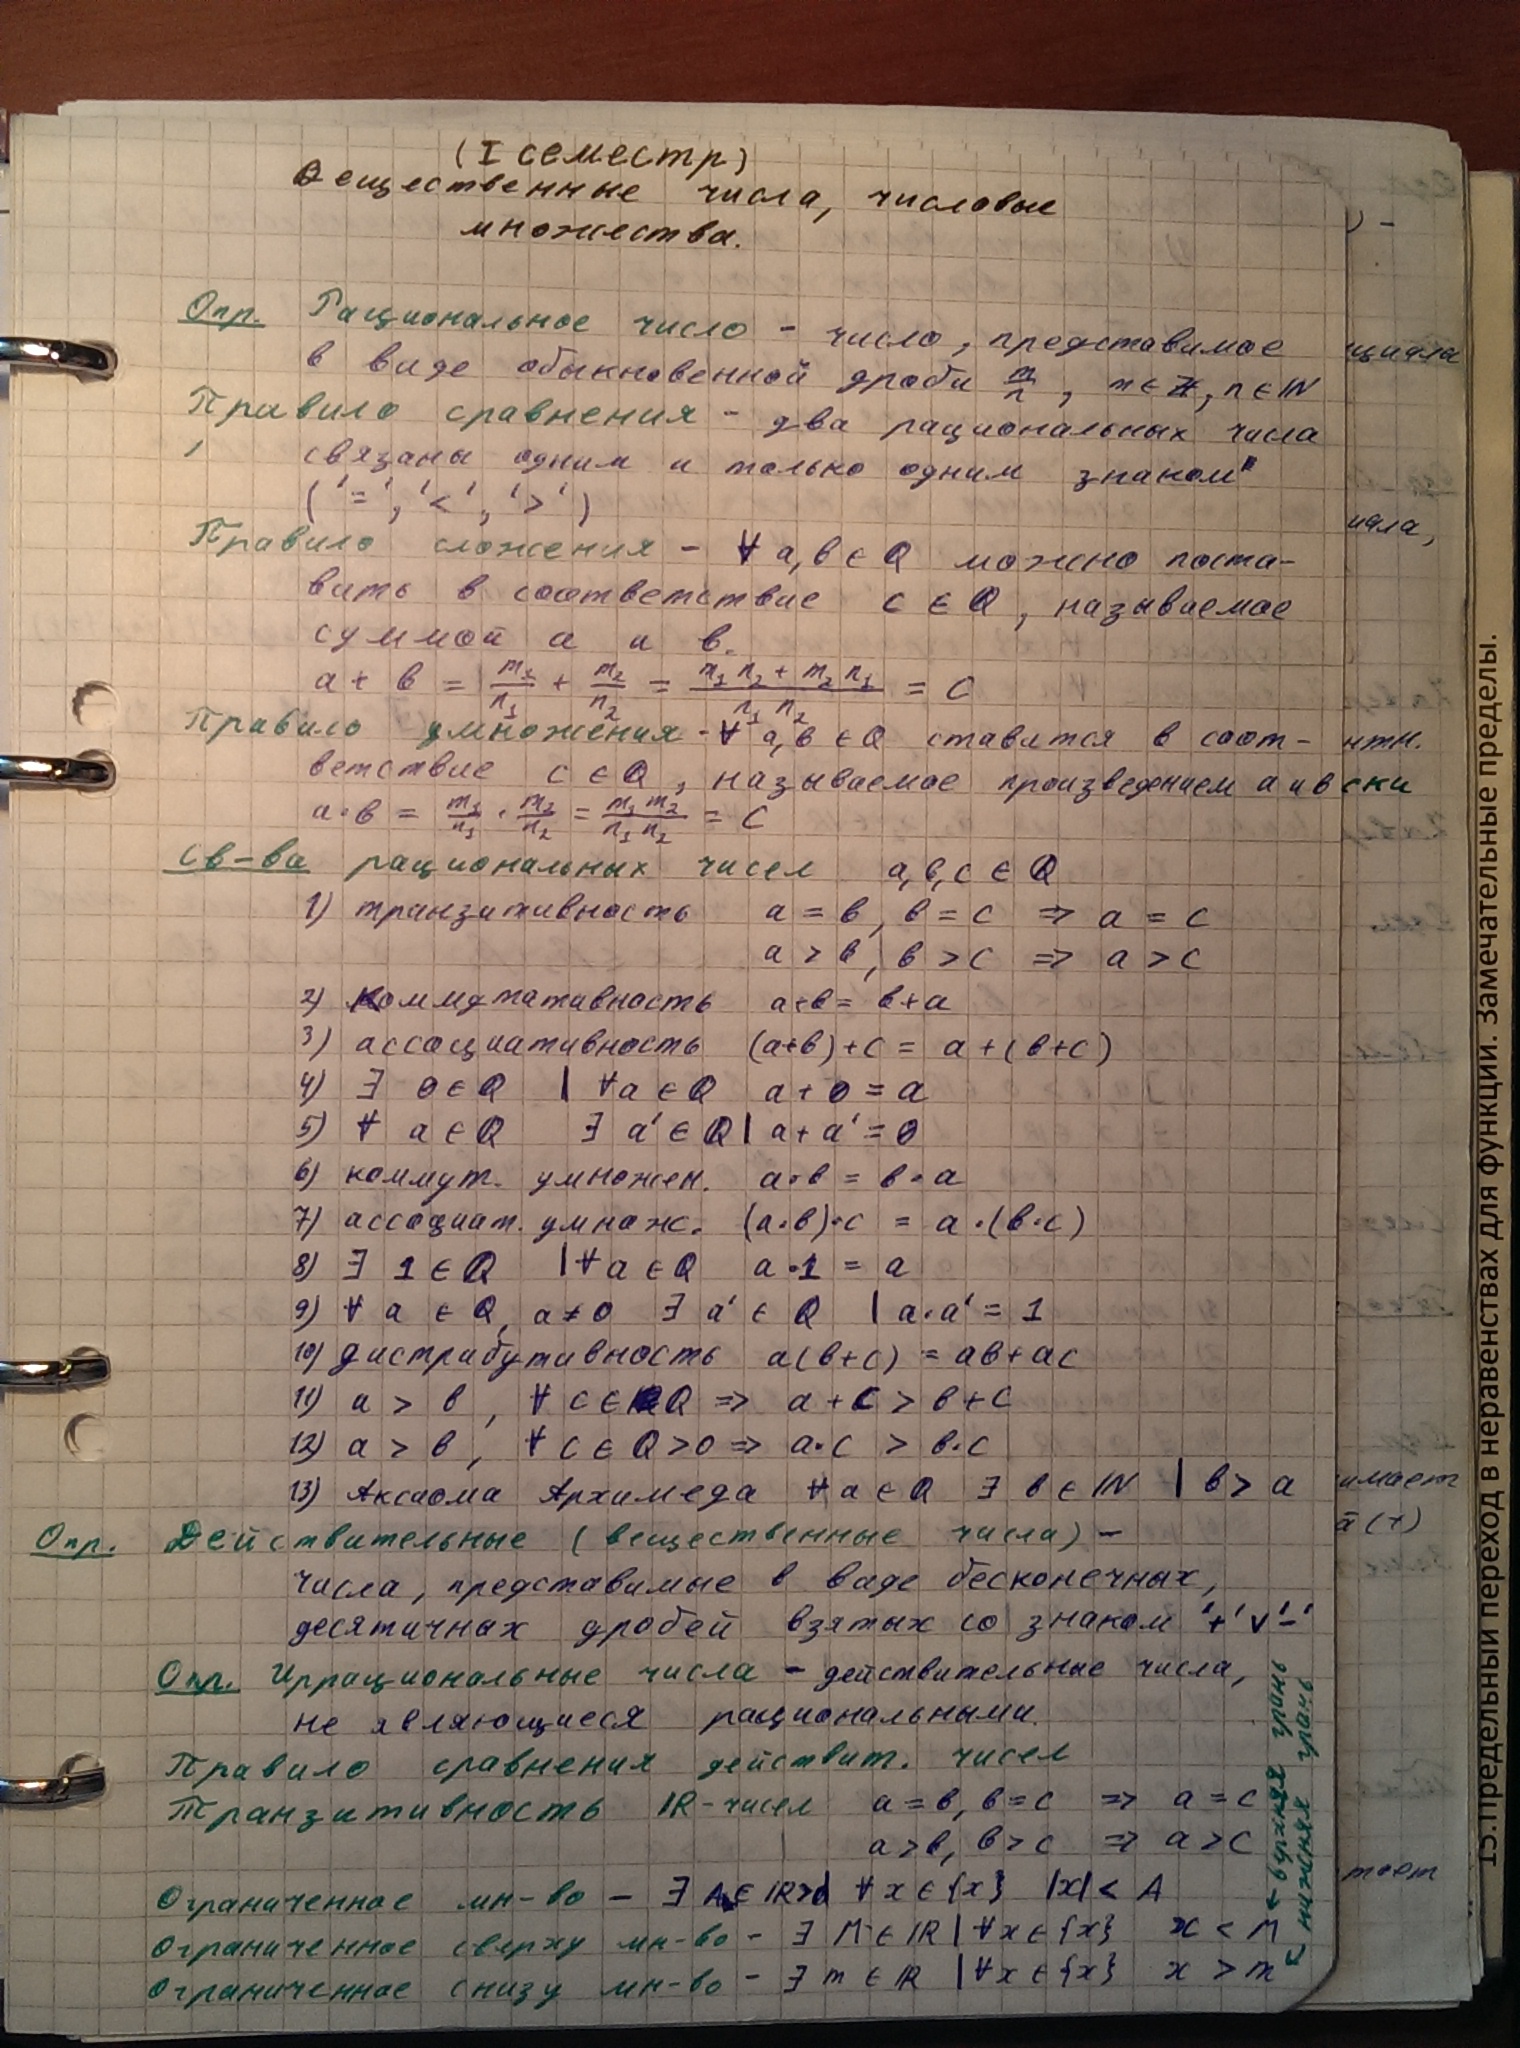 (I семестр)
Вещественные числа, числовые
множества.
Опр. Рациональное число - число, представимое
в виде обыкновенной дроби m/n, m∈ℤ, n∈ℕ
Правило сравнения - два рациональных числа
связаны одним и только одним знаком
('=', '<', '>')
Правило сложения - ∀ a,b∈Q можно поста-
вить в соответствие c∈Q, называемое
суммой a и b.
a + b = m₁/n₁ + m₂/n₂ = (m₁n₂ + m₂n₁)/(n₁n₂) = C
Правило умножения - ∀ a,b∈Q ставится в соот-
ветствие c∈Q, называемое произведением a и b
a·b = m₁/n₁ · m₂/n₂ = (m₁m₂)/(n₁n₂) = C
Св-ва рациональных чисел a,b,c∈Q
1) транзитивность a = b, b = c ⇒ a = c
a > b, b > c ⇒ a > c
2) Коммутативность a+b = b+a
3) ассоциативность (a+b)+c = a+(b+c)
4) ∃ 0∈Q | ∀a∈Q a+0=a
5) ∀ a∈Q ∃ a'∈Q | a+a'=0
6) коммут. умножен. a·b = b·a
7) ассоциат. умнож. (a·b)·c = a·(b·c)
8) ∃ 1∈Q | ∀a∈Q a·1 = a
9) ∀ a∈Q, a≠0 ∃ a'∈Q | a·a' = 1
10) дистрибутивность a(b+c) = ab+ac
11) a > b, ∀ c∈Q ⇒ a+c > b+c
12) a > b, ∀ c∈Q>0 ⇒ a·c > b·c
13) Аксиома Архимеда ∀a∈Q ∃ b∈ℕ | b > a
Опр. Действительные (вещественные числа) -
числа, представимые в виде бесконечных,
десятичных дробей взятых со знаком '+' ∨ '-'
Опр. Иррациональные числа - действительные числа,
не являющиеся рациональными.
Правило сравнения действит. чисел
Транзитивность ℝ-чисел a=b, b=c ⇒ a=c
a>b, b>c ⇒ a>c
Ограниченное мн-во - ∃ A∈ℝ>0 ∀x∈{x} |x|< A
Ограниченное сверху мн-во - ∃ M∈ℝ | ∀x∈{x} x < M
Ограниченное снизу мн-во - ∃ m∈ℝ | ∀x∈{x} x > m
← верхняя грань
← нижняя грань
нтн.
ски
имает
15.Предельный переход в неравенствах для функции. Замечательные пределы.